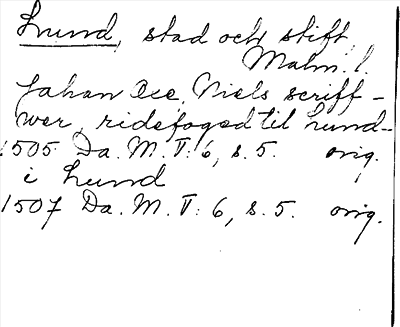 Lund, stad och stift,
Malm. l.
Jahan Ace, Niels scriff-
wer, ridefoged til Lund-
1505 Da. M. V: 6, s. 5. orig.
i Lund
1507 Da. M. V: 6, s. 5. orig.